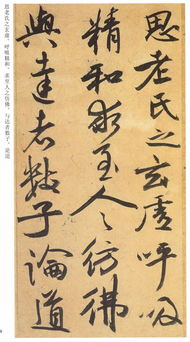 思老氏之玄虚呼吸
精和求至人之彷彿
與達者數子論道
思老氏之玄虚，呼吸精和，求至人之仿佛，与达者数子，论道